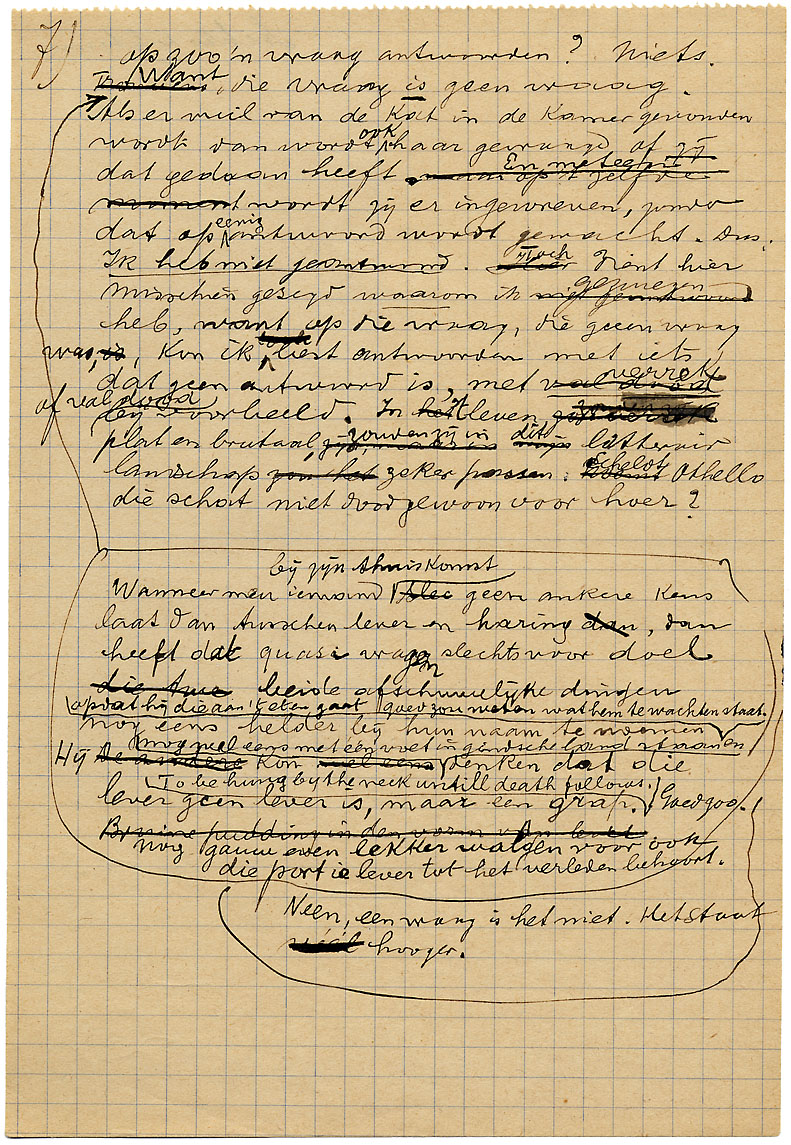 7)
op zoo'n vraag antwoorden? Niets.
Want
Trouwens, die vraag is geen vraag.
Als er vuil van de Kat in de Kamer gevonden
wordt dan wordt ook haar gevraagd of zij
dat gedaan heeft En meteen
maar op 't zelfde
moment wordt zij er ingewreven, zonder
dat op eenig antwoord wordt gewacht. Dus:
Ik heb niet geantwoord. Toch dient hier
misschien gezegd waarom ik gezwegen
niet geantwoord
heb, want op die vraag, die geen vraag
was, is, Kon ik best antwoorden met iets
dat geen antwoord is, met verrek
val dood
of val dood
bij voorbeeld. In het leven
plat en brutaal, zouden zij in dit litterair
landschap zou het zeker passen. Schelot Othello
die schat niet doodgewoon voor hoer?
bij zijn thuiskomst
Wanneer men iemand geen andere Keus
laat dan tusschen lever en haring dan, dan
heeft dat quasi vragen slechts voor doel
die twee beide afschuwelijke dingen
opdat hij die aan 't eten gaat goed zou weten wat hem te wachten staat.
nog eens helder bij hun naam te noemen
nog wel eens met één voet in
Hij de andere Kon wel eens denken dat die
To be hung by the neck untill death follows.
lever geen lever is, maar een grap. Goed zoo.
Bruine pudding in den vorm van lever
nog gauw even lekker walgen voor ook
die portie lever tot het verleden behoort.
Neen, een vraag is het niet. Het staat
véél hooger.